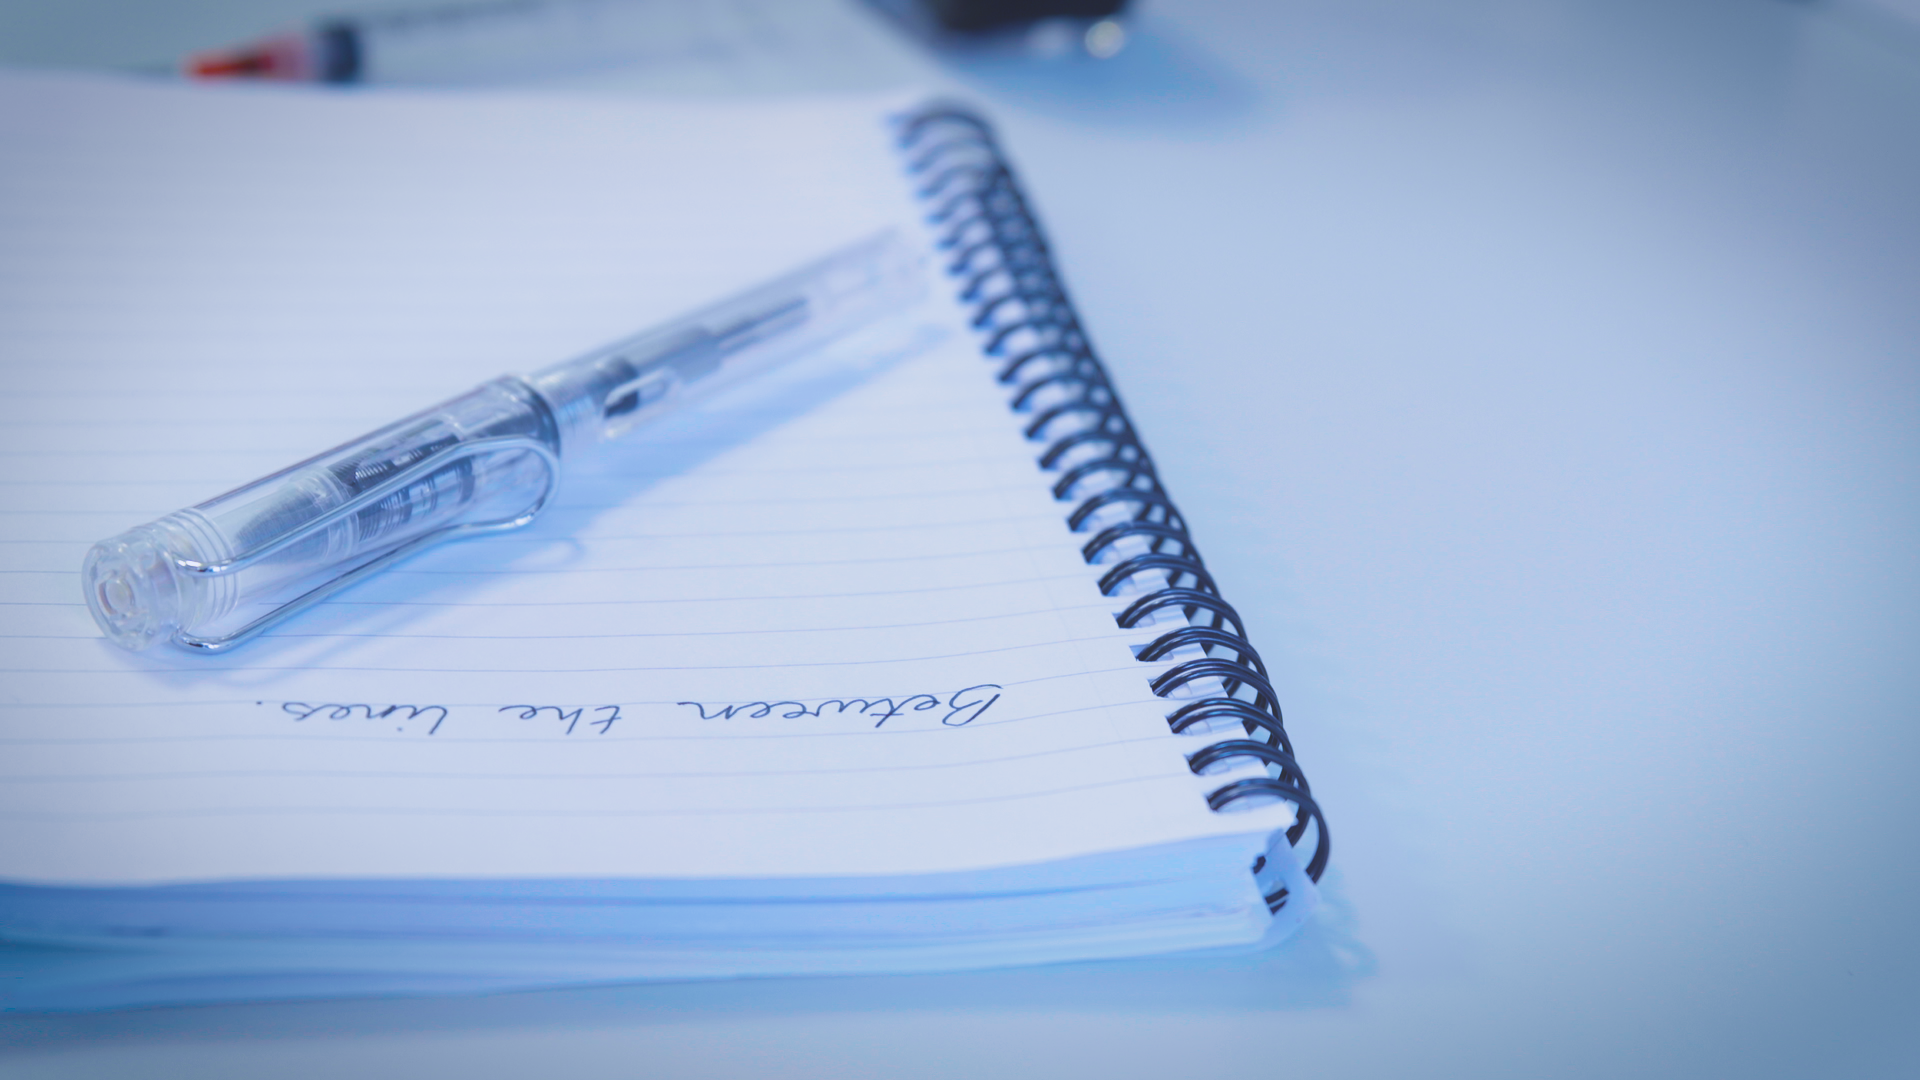 Between the lines.